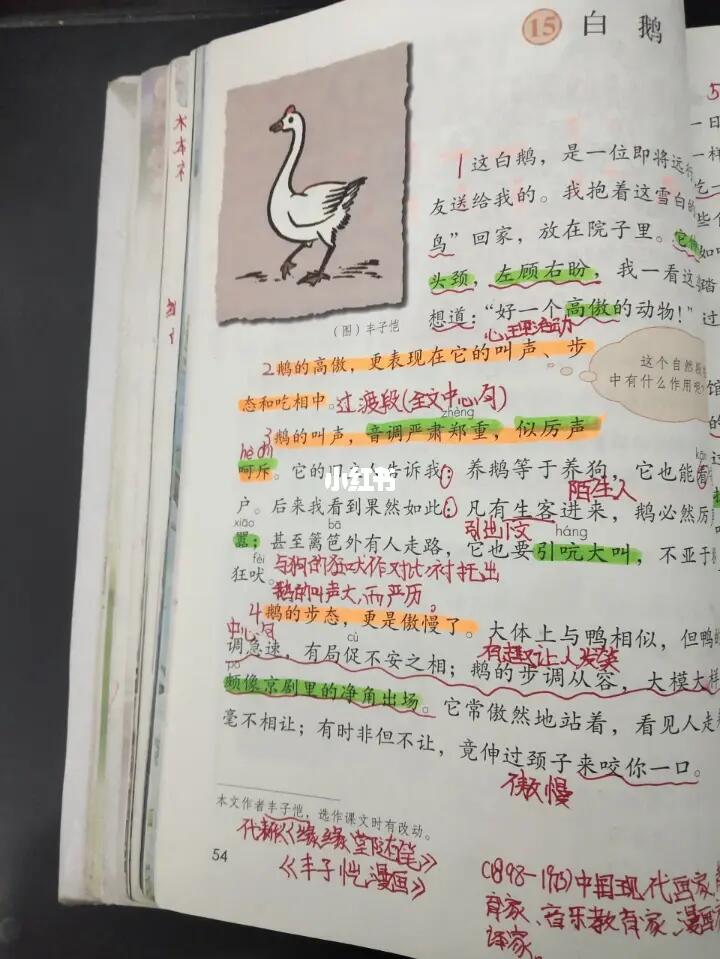 15 白鹅
1 这白鹅，是一位即将远行
友送给我的。我抱着这雪白的
鸟”回家，放在院子里。它伸
头颈，左顾右盼，我一看这
想道：“好一个高傲的动物！”
（图）丰子恺
心理活动
2 鹅的高傲，更表现在它的叫声、步
态和吃相中。过渡段(全文中心句)
这个自然段
中有什么作用呢
zhèng
3 鹅的叫声，音调严肃郑重，似厉声
hē
呵斥。它的旧主人告诉我：养鹅等于养狗，它也能看
kān
小红书
陌生人
户。后来我看到果然如此：凡有生客进来，鹅必然厉
xiāo bā 引出下文 háng
嚣；甚至篱笆外有人走路，它也要引吭大叫，不亚于
fèi
狂吠。与狗的狂吠作对比衬托出
鹅的叫声大而严厉。
4 鹅的步态，更是傲慢了。大体上与鸭相似，但鸭的
中心句 cù
调急速，有局促不安之相；鹅的步调从容，大模大样
pō
颇像京剧里的净角出场。它常傲然地站着，看见人走
毫不相让；有时非但不让，竟伸过颈子来咬你一口。
傲慢
本文作者丰子恺，选作课文时有改动。
代表作《缘缘堂随笔》
《丰子恺漫画》
54
(1898-1975)中国现代画家
育家、音乐教育家、漫画家
译家。